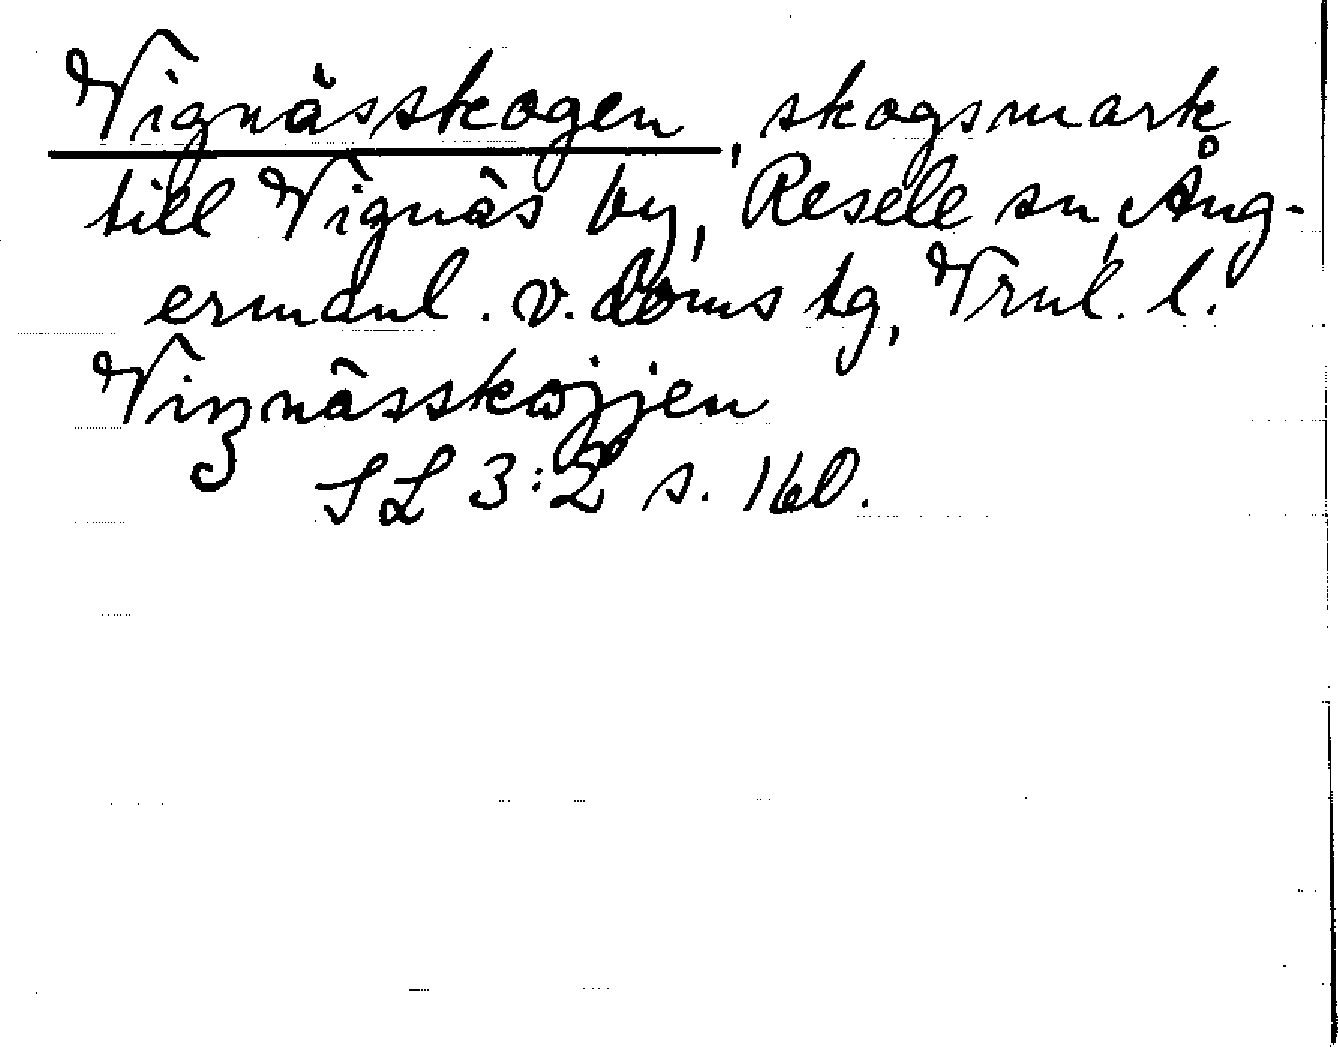 Vignässkogen, skogsmark
till Vignäs by, Resele sn, Ång-
ermanl. v. doms tg, Vrnl. l.
Viŋnässkojjen
SL 3:2 s. 160.